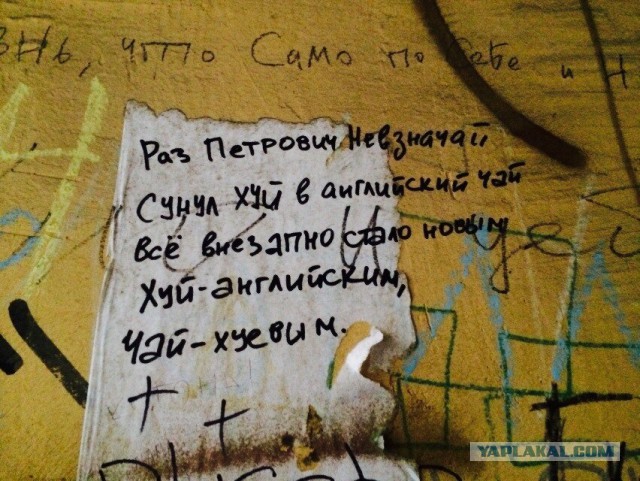 что Само по Себе и
Раз Петрович Невзначай
Сунул хуй в английский чай
Всё внезапно стало новым
Хуй-английским,
Чай-хуевым.
YAPLAKAL.COM